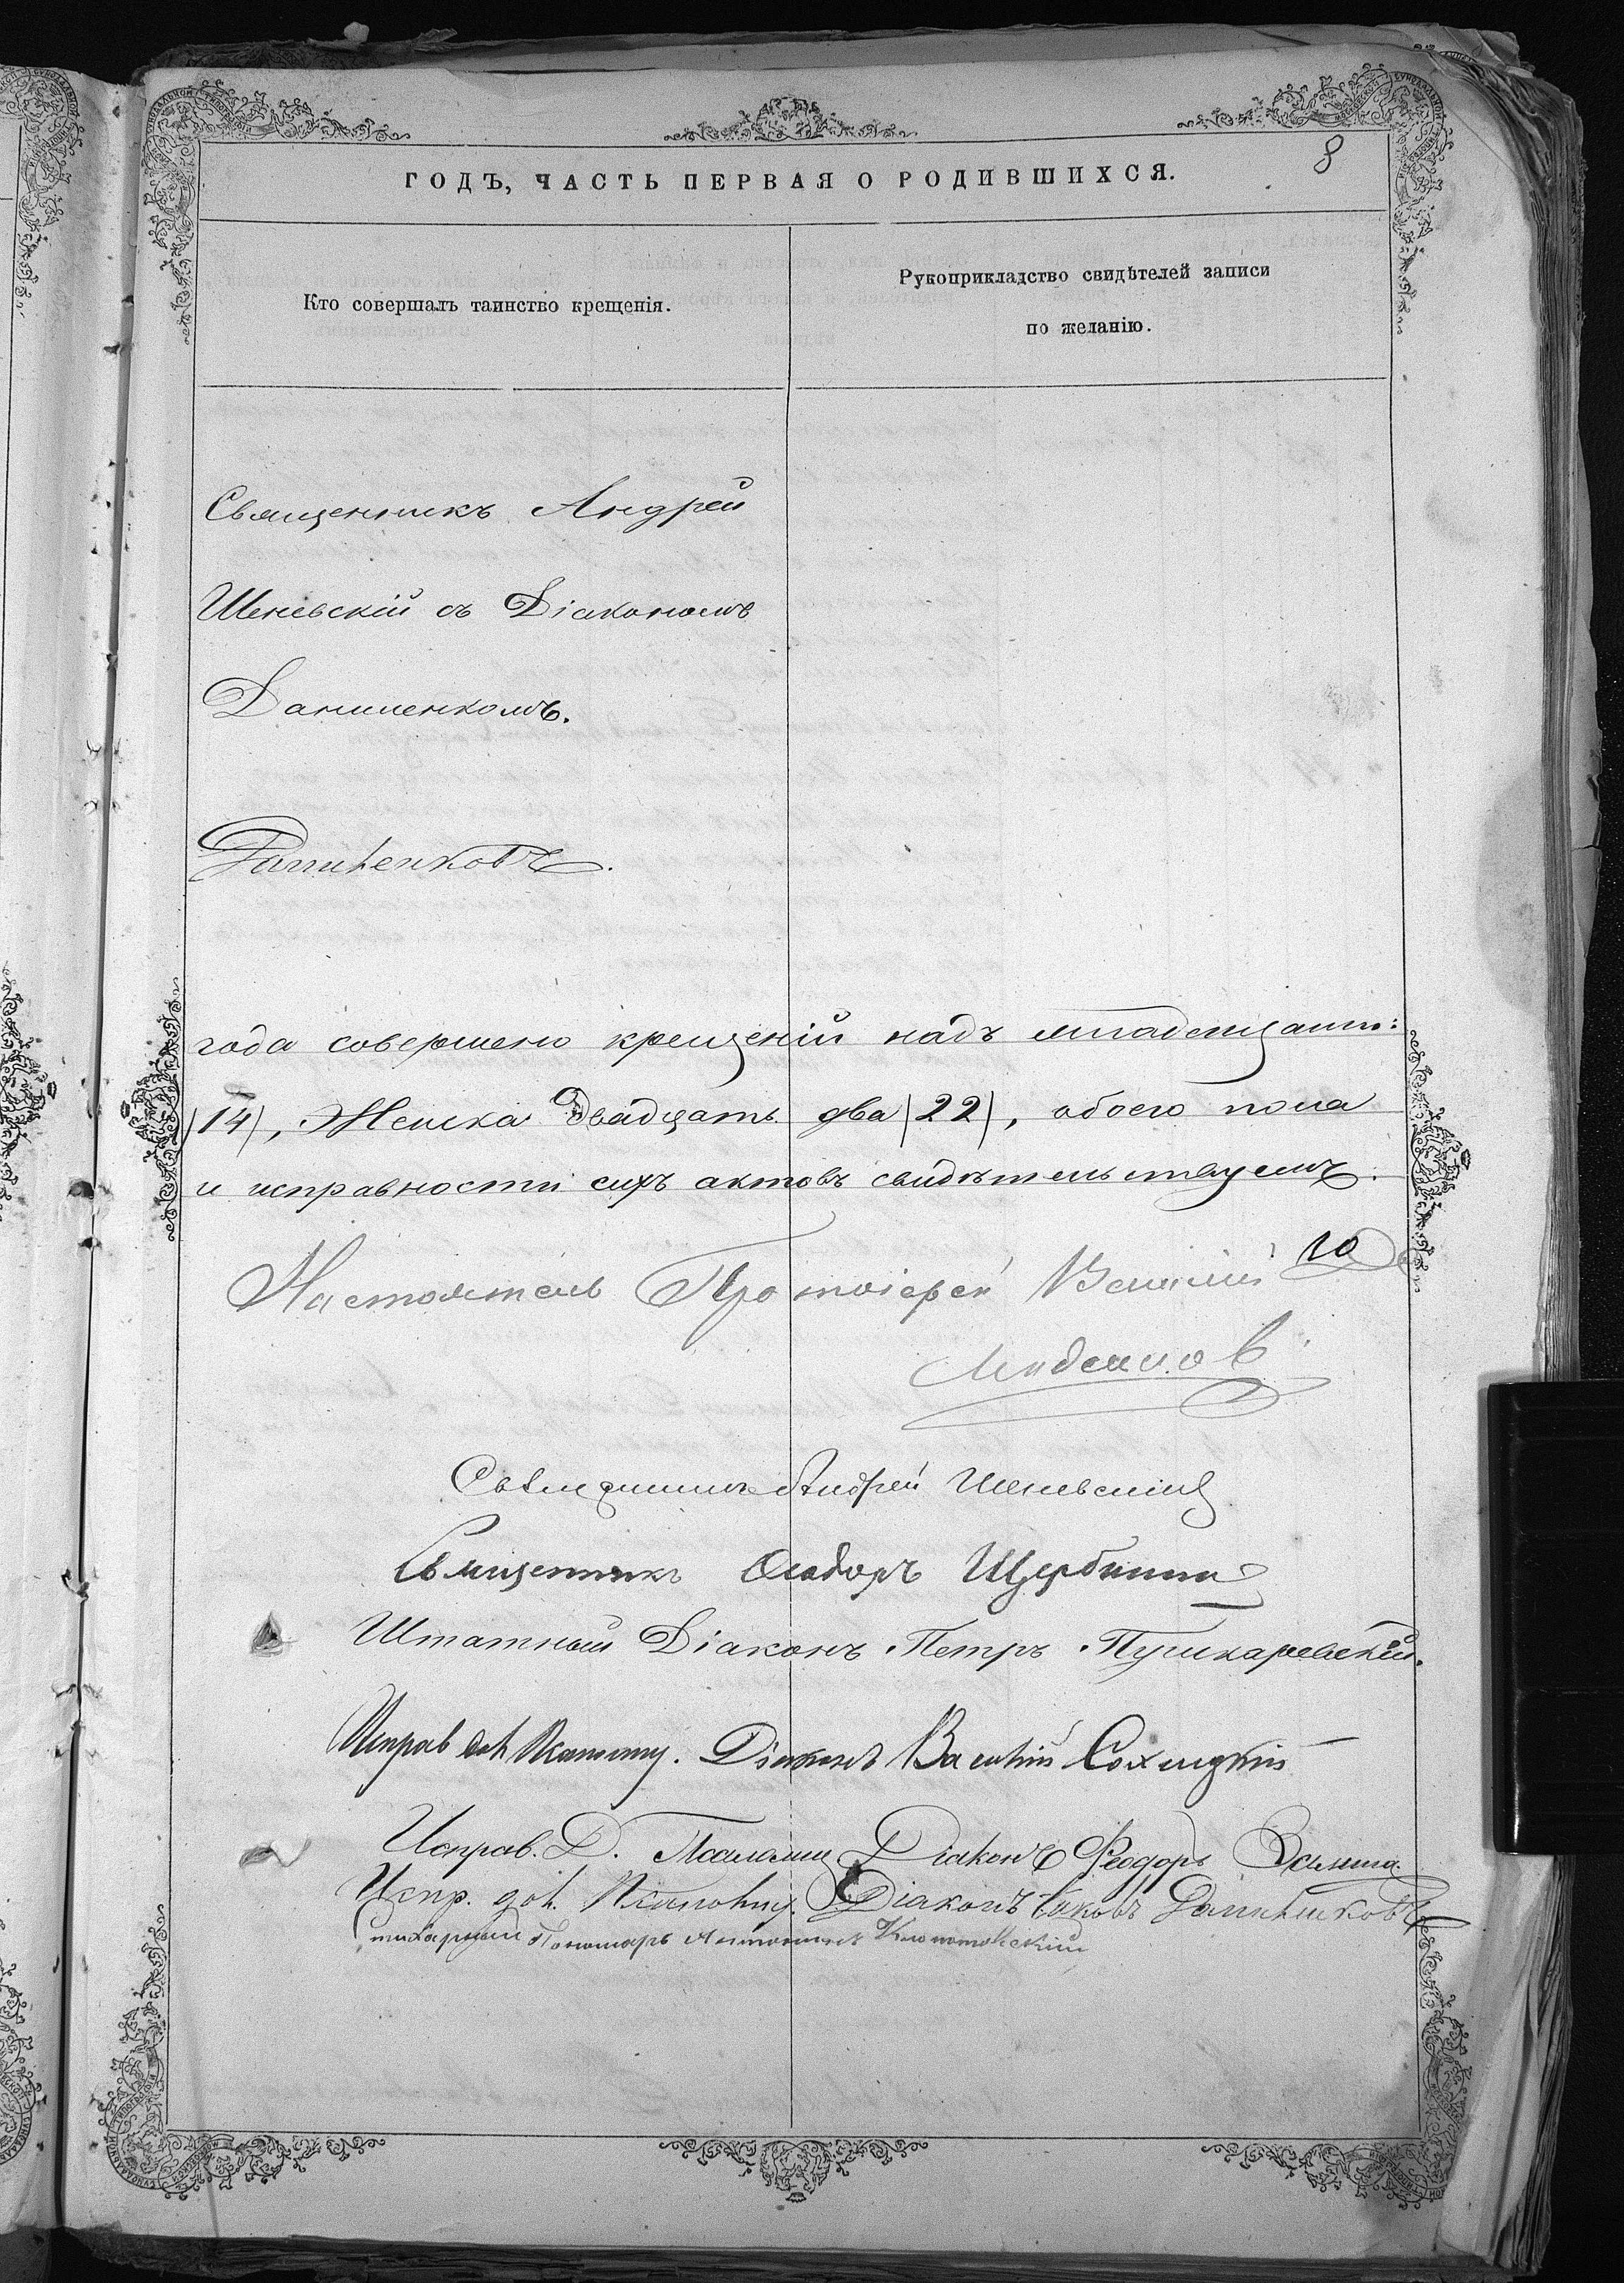 8
ГОДЪ, ЧАСТЬ ПЕРВАЯ О РОДИВШИХСЯ.
Кто совершалъ таинство крещенія.
Рукоприкладство свидѣтелей записи
по желанію.
Священникъ Андрей
Шеневскій съ Діакономъ
Даниленкомъ.
Даниленковъ.
года совершено крещеній надъ младенцами:
(14), Женска двадцать два (22), обоего пола
и исправности сихъ актовъ свидѣтельствуемъ.
Настоятель Протоіерей
Священникъ Андрей Шеневскій
Священникъ Ѳеодоръ Щербина
Штатный Діаконъ Петръ Пушкаревскій.
Исправ дол Псаломщ. Діаконъ Василій
Исправ. Д. Псаломщ Діаконъ Феодоръ
Испр. дол. Псаломщ. Діаконъ Іаковъ Даниленковъ
Стихарный Пономарь Клопотовскій